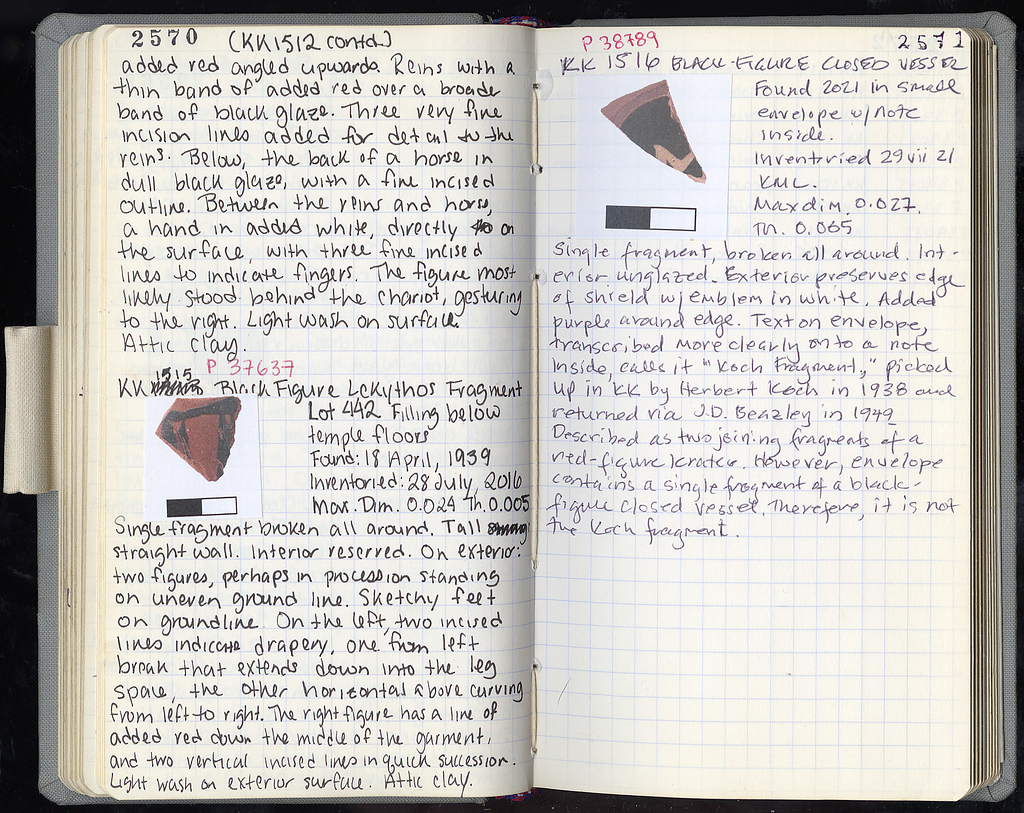 2570 (KK1512 contd.)
added red angled upwards. Reins with a
thin band of added red over a broader
band of black glaze. Three very fine
incision lines added for detail to the
reins. Below, the back of a horse in
dull black glaze, with a fine incised
outline. Between the reins and horse,
a hand in added white, directly on
the surface, with three fine incised
lines to indicate fingers. The figure most
likely stood behind the chariot, gesturing
to the right. Light wash on surface.
Attic clay.
P 37637
KK 1515 Black Figure Lekythos Fragment
Lot 442 Filling below
temple floors
Found: 18 April, 1939
Inventoried: 28 July, 2016
Max. Dim. 0.024 Th. 0.005
Single fragment broken all around. Tall
straight wall. Interior reserved. On exterior:
two figures, perhaps in procession standing
on uneven ground line. Sketchy feet
on groundline. On the left, two incised
lines indicate drapery, one from left
break that extends down into the leg
space, the other horizontal above curving
from left to right. The right figure has a line of
added red down the middle of the garment,
and two vertical incised lines in quick succession.
Light wash on exterior surface. Attic clay.
P 38789
2571
KK 1516 BLACK-FIGURE CLOSED VESSEL
Found 2021 in small
envelope w/note
inside.
Inventried 29 vii 21
KML.
Max dim. 0.027.
Th. 0.065
Single fragment, broken all around. Int-
erior unglazed. Exterior preserves edge
of shield w/ emblem in white. Added
purple around edge. Text on envelope,
transcribed more clearly onto a note
inside, calls it "Koch Fragment," picked
up in KK by Herbert Koch in 1938 and
returned via J.D. Beazley in 1949.
Described as two joining fragments of a
red-figure krater. However, envelope
contains a single fragment of a black-
figure closed vessel. Therefore, it is not
the Koch fragment.